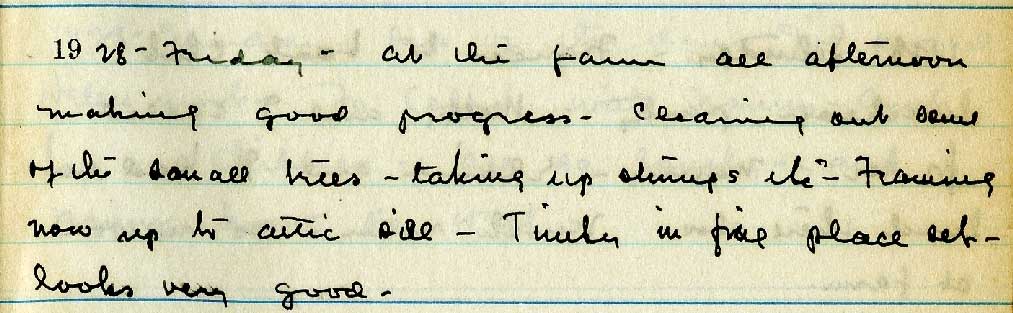 1928 - Friday - at the farm all afternoon
making good progress - Cleaning out some
of the small trees - taking up stumps etc - Framing
now up to attic sill - Timber in fire place set -
looks very good -